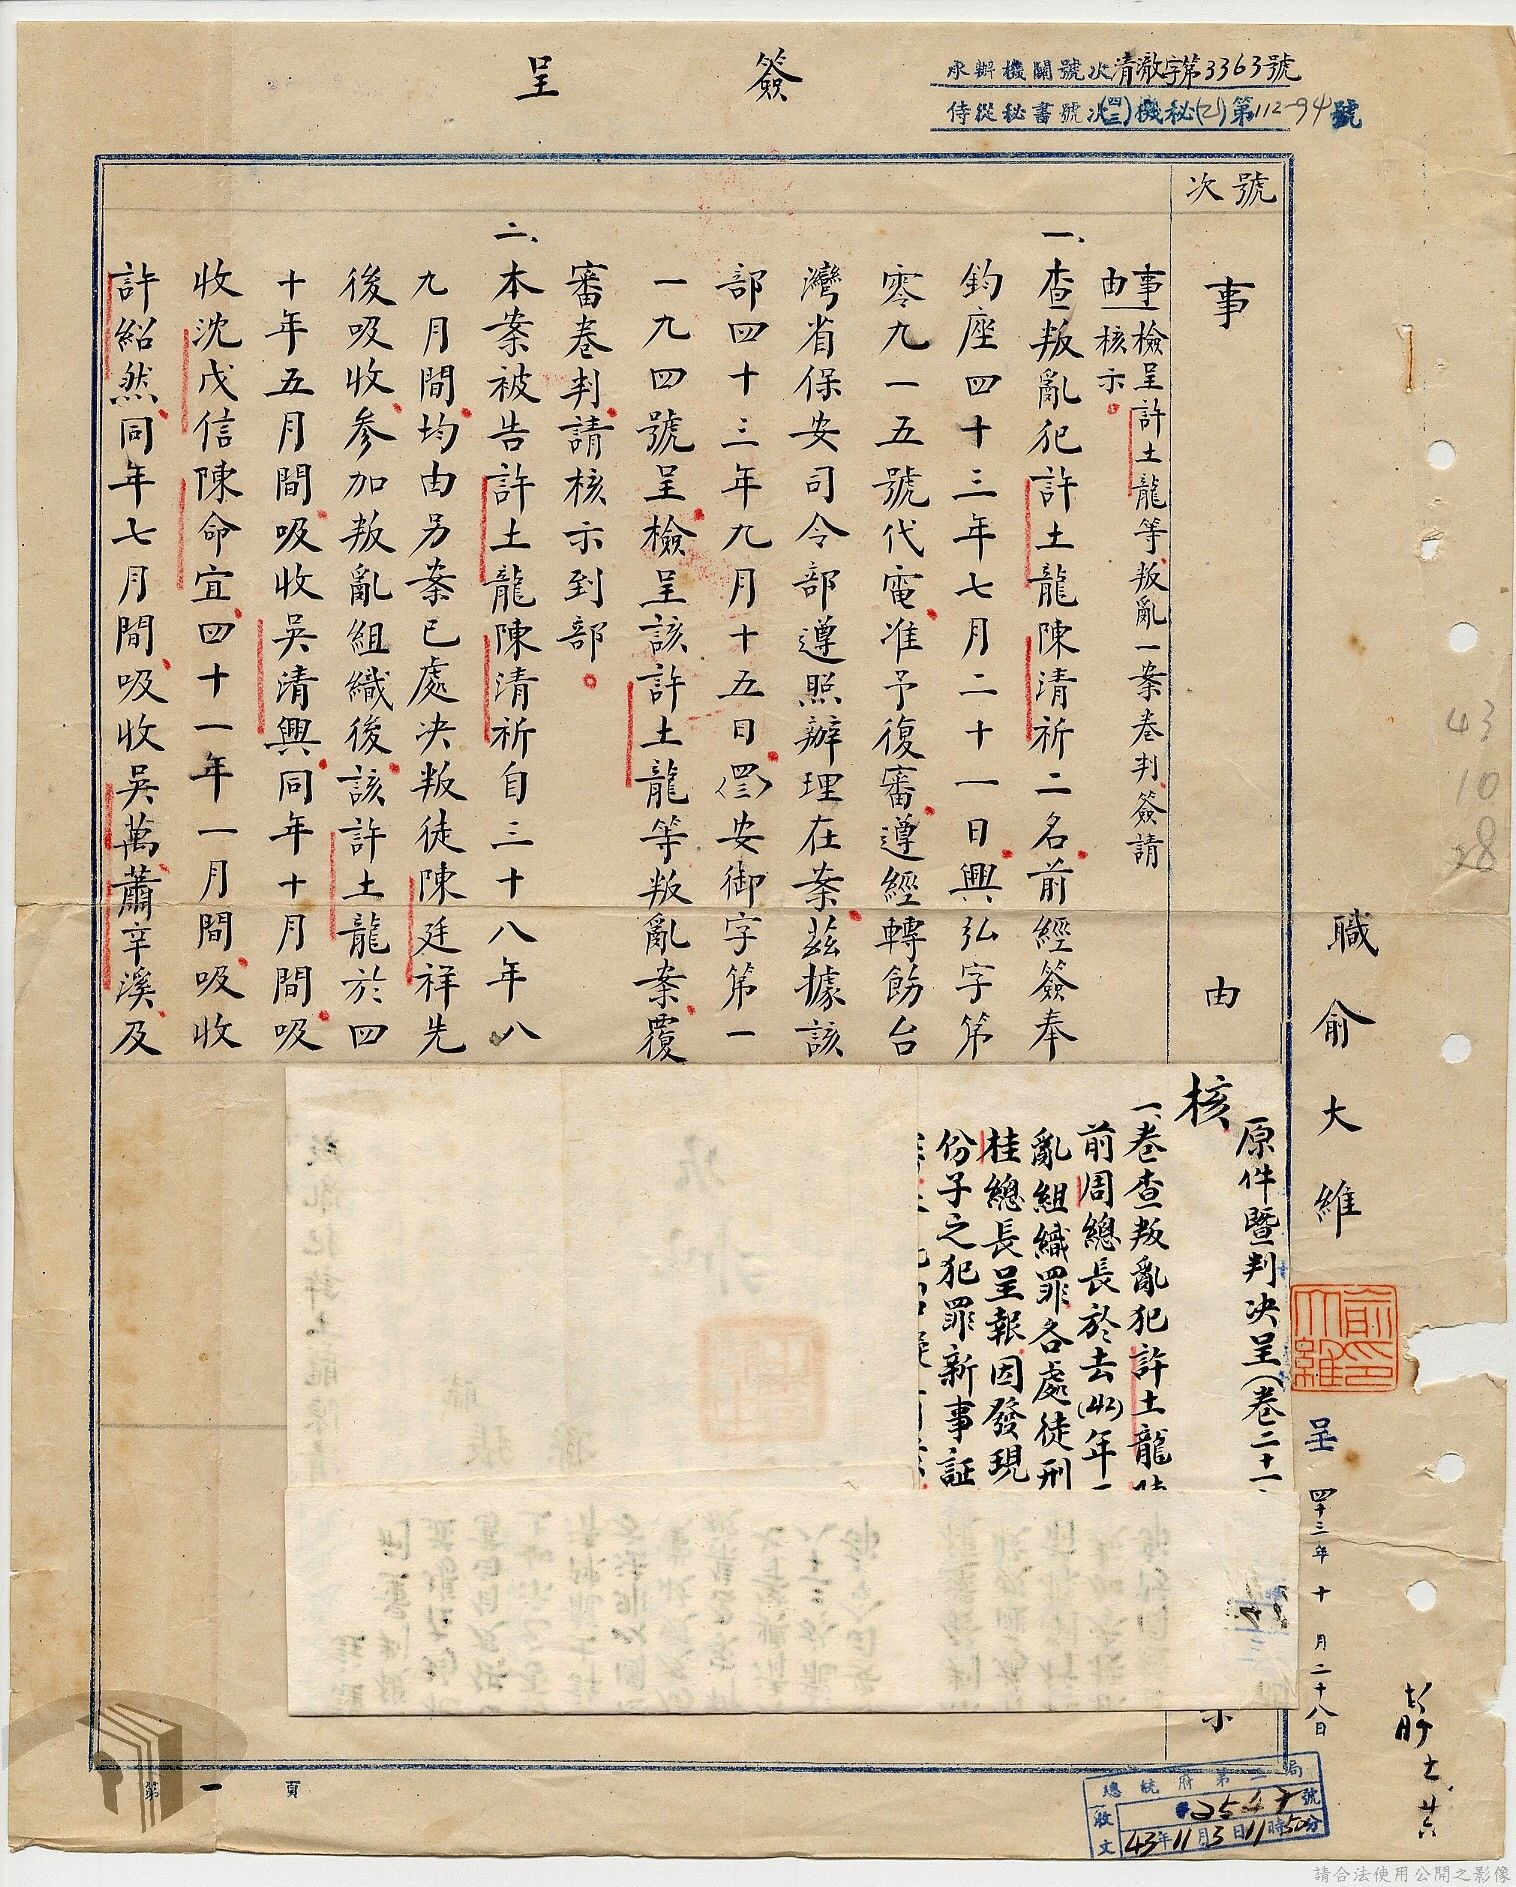 簽呈
承辦機關號次清澈字第3363號
侍從秘書號次(四三)機秘(乙)第112-94號
號次
事由
事由 檢呈許土龍等叛亂一案卷判簽請
核示
一、查叛亂犯許土龍陳清祈二名前經簽奉
鈞座四十三年七月二十一日興弘字第
零九一五號代電准予復審遵經轉飭台
灣省保安司令部遵照辦理在案茲據該
部四十三年九月十五日(四三)安御字第一
一九四號呈檢呈該許土龍等叛亂案覆
審卷判請核示到部
二、本案被告許土龍陳清祈自三十八年八
九月間均由另案已處決叛徒陳廷祥先
後吸收參加叛亂組織後該許土龍於四
十年五月間吸收吳清興同年十月間吸
收沈戊信陳命宜四十一年一月間吸收
許紹然同年七月間吸收吳萬蕭辛溪及
核
原件暨判決呈(卷二十一
一、卷查叛亂犯許土龍
前周總長於去(42)年
亂組織罪各處徒刑
桂總長呈報因發現
份子之犯罪新事証
示
職俞大維
俞大維印
呈
四十三年十月二十八日
43
10
28
總統府第二局
收文
2547號
43年11月3日11時50分
第一頁
請合法使用公開之影像